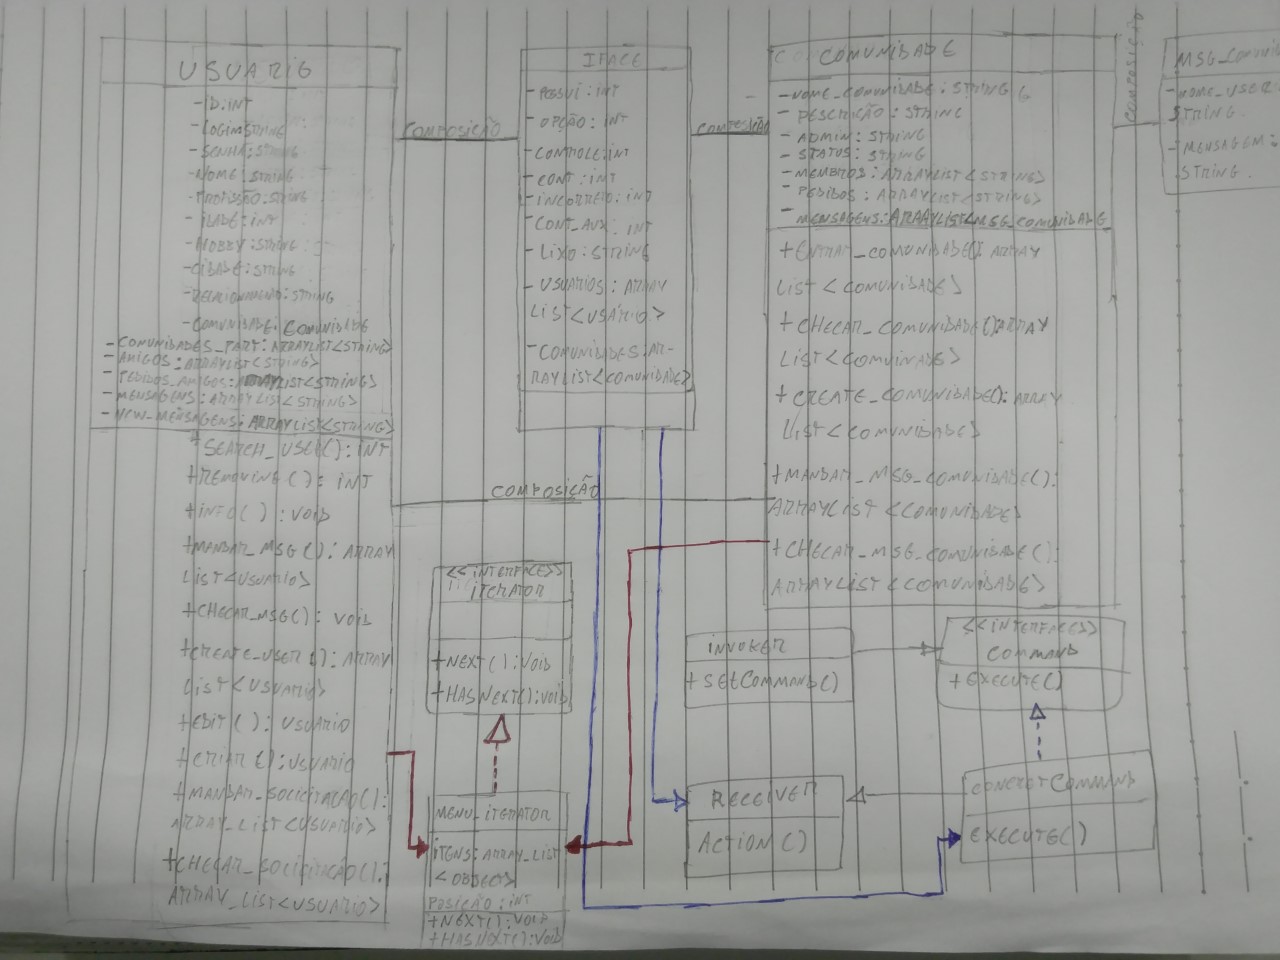 USUARIO
-ID:INT
-LOGIN:STRING
-SENHA:STRING
-NOME:STRING
-PROFISSÃO:STRING
-IDADE:INT
-HOBBY:STRING
-CIDADE:STRING
-RELACIONAMENTO:STRING
-COMUNIDADE:COMUNIDADE
-COMUNIDADES_PART:ARRAYLIST<STRING>
-AMIGOS:ARRAYLIST<STRING>
-PEDIDOS_AMIGOS:ARRAYLIST<STRING>
-MENSAGENS:ARRAYLIST<STRING>
-NEW_MENSAGENS:ARRAYLIST<STRING>
+SEARCH_USER():INT
+REMOVING():INT
+INFO():VOID
+MANDAR_MSG():ARRAY
LIST<USUARIO>
+CHECAR_MSG():VOID
+CREATE_USER():ARRAY
LIST<USUARIO>
+EDIT():USUARIO
+CRIAR():USUARIO
+MANDAR_SOLICITACAO():
ARRAY_LIST<USUARIO>
+CHECAR_SOLICITAÇÃO():
ARRAY_LIST<USUARIO>
COMPOSIÇÃO
IFACE
-POSSUI:INT
-OPÇÃO:INT
-CONTROLE:INT
-CONT:INT
-INCORRETO:INT
-CONT_AUX:INT
-LIXO:STRING
-USUARIOS:ARRAY
LIST<USÁRIO>
-COMUNIDADES:AR-
RAYLIST<COMUNIDADE>
COMPOSIÇÃO
COMUNIDADE
-NOME_COMUNIDADE:STRING
-DESCRIÇÃO:STRING
-ADMIN:STRING
-STATUS:STRING
-MEMBROS:ARRAYLIST<STRING>
-PEDIDOS:ARRAYLIST<STRING>
-MENSAGENS:ARRAYLIST<MSG_COMUNIDADE
+ENTRAR_COMUNIDADE():ARRAY
LIST<COMUNIDADE>
+CHECAR_COMUNIDADE():ARRAY
LIST<COMUINADE>
+CREATE_COMUNIDADE():ARRAY
LIST<COMUNIDADE>
+MANDAR_MSG_COMUNIDADE():
ARRAYLIST<COMUNIDADE>
+CHECAR_MSG_COMUNIDADE():
ARRAYLIST<COMUNIDADE>
COMPOSIÇÃO
MSG_COMUNI
-NOME_USER:
STRING.
-MENSAGEM:
STRING.
COMPOSIÇÃO
<<INTERFACE>>
ITERATOR
+NEXT():VOID
+HASNEXT():VOID
MENU_ITERATOR
ITENS:ARRAY_LIST
<OBJECT>
POSIÇÃO:INT
+NEXT():VOID
+HASNEXT():VOID
INVOKER
+SETCOMMAND()
<<INTERFACE>>
COMMAND
+EXECUTE()
RECEIVER
ACTION()
CONCRETCOMMAND
EXECUTE()